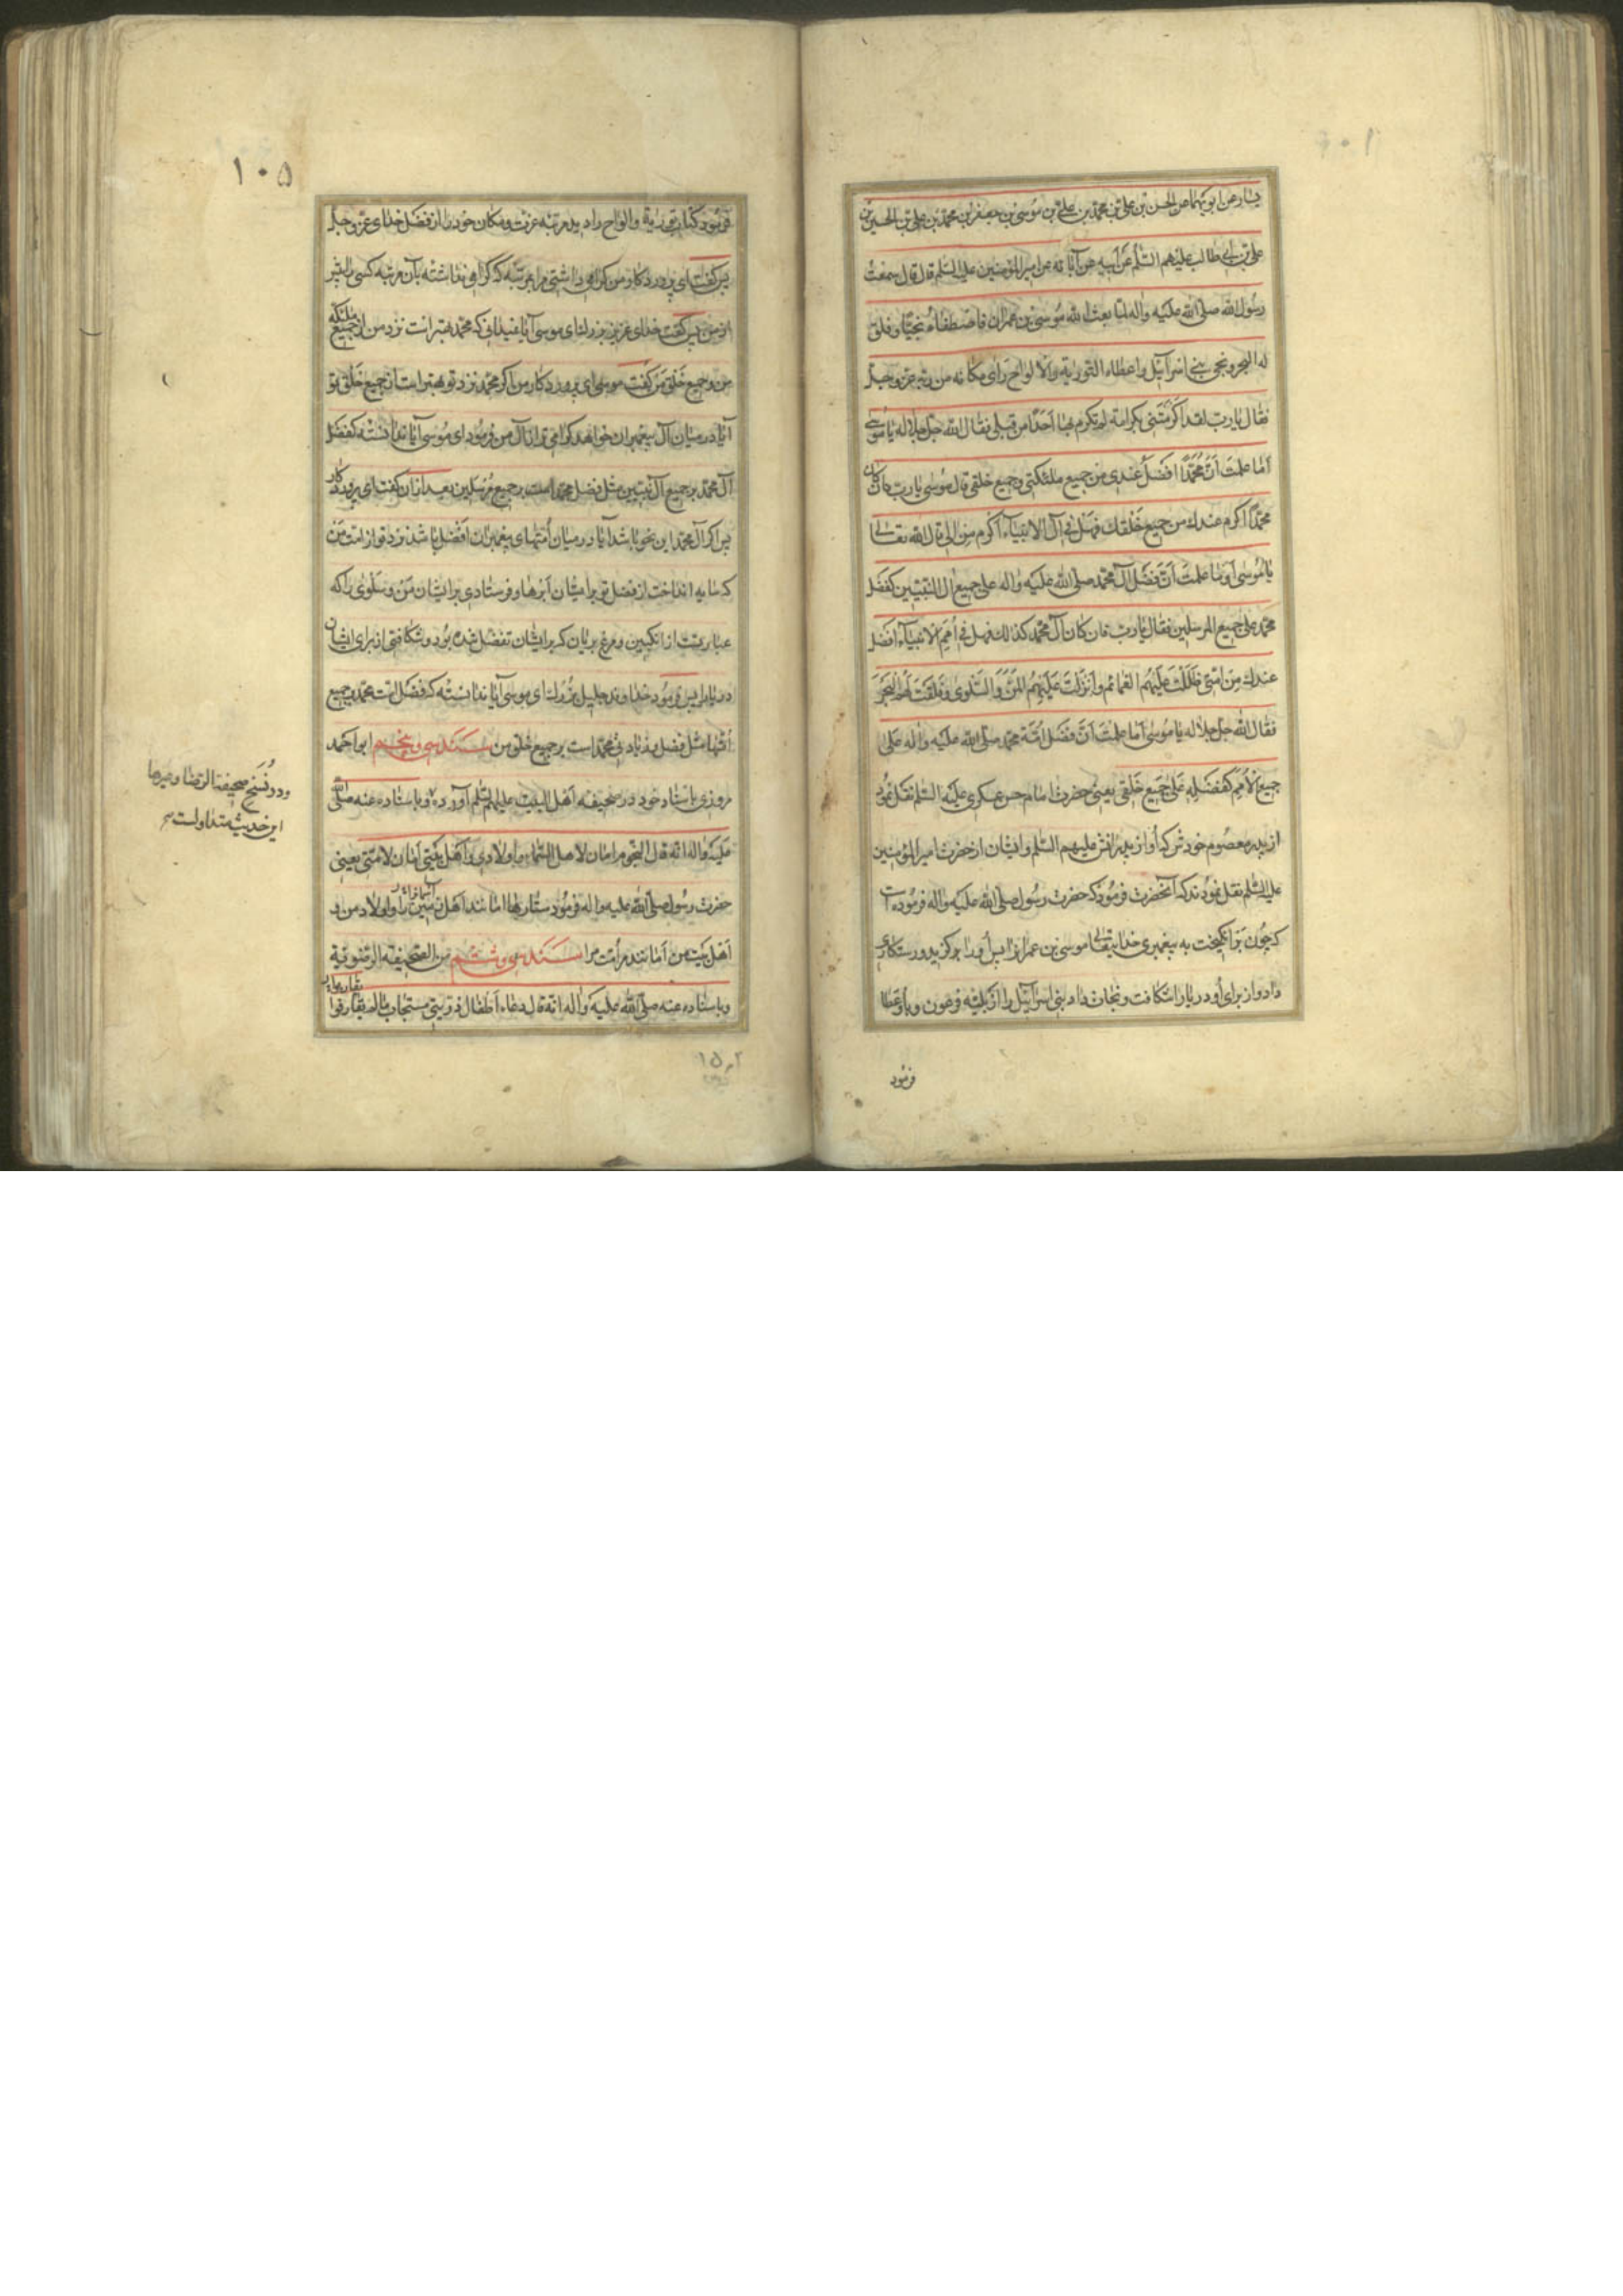 يسار عن ابويهما عن الحسن بن علی بن محمد بن علی بن موسی بن جعفر بن محمد بن علی بن الحسین بن
علی بن ابی طالب علیهم السلام عن ابیه عن آبائه عن امیرالمؤمنین علیه السلام قال قال سمعت
رسول الله صلی الله علیه واله لما بعث الله موسی بن عمران فاصطفاه نجیّا وفلق
له البحر ونجی بنی اسرآئیل واعطاه التوراية والالواح رای مکانه من ربه عز وجل
فقال یا رب لقد اکرمتنی بکرامة لم تکرم بها احدا من قبلی فقال الله جل جلاله یا موسی
اما علمت انّ محمّدًا افضل عندی من جمیع ملئکتی وجمیع خلقی قال موسی یا رب فان کان
محمد اکرم عندك من جمیع خلقك فهل فی آل الانبیآء اکرم من الی قال الله تعالی
یا موسی اوما علمت انّ فضل آل محمد صلی الله علیه واله علی جمیع ال النبیین کفضل
محمد علی جمیع المرسلین فقال یا رب فان کان آل محمد کذلك فهل فی امم الانبیآء افضل
عندك من امتی ظللت علیهم الغمائم وانزلت علیهم المنّ والسلوی وفلقت لهم البحر
فقال الله جل جلاله یا موسی اما علمت انّ فضل امّة محمد صلی الله علیه واله علی
جمیع الامم کفضله علی جمیع خلقی یعنی حضرت امام حسن عسکری علیه السلم نقل نمود
از پدر معصوم خودش که او از پدرانش علیهم السلم وایشان از حضرت امیرالمؤمنین
علیه السلم نقل نمودند که آنحضرت فرمود که حضرت رسول صلی الله علیه واله فرموده است
که چون برانکیخت به پیغمبری خدایتعالی موسی بن عمرانرا پس اورا برکزید ورستکاری
داد واز برای او دریا را شکافت ونجات داد بنی اسرآئیل را از بلیّه فرعون وباو عطا
فرمود
۱۰۵
فرمود کتاب توریة والواح را دید مرتبه عزت ومکان خود را از فضل خدای عز وجل
پس کفت ای پروردکار من کرامی داشتی مرا بمرتبه که کرامی نداشته بآن مرتبه کسی را پیشتر
از من پس کفت خدای عزیز بزرك ای موسی آیا نمیدانی که محمد بهتر است نزد من از جمیع ملئکه
من وجمیع خلق من کفت موسی ای پروردکار من اکر محمد نزد تو بهتر است از جمیع خلق تو
آیا در میان آل پیغمبران خواهد کرامی تر از آل من فرمود ای موسی آیا ندانسته که فضل
آل محمد بر جمیع آل نبیین مثل فضل محمد است بر جمیع مرسلین بعد از آن کفت ای پروردکار
پس اکر آل محمد این نحو باشد آیا در میان امتهای پیغمبران افضل باشد نزد تو از امت من
که سایه انداخت از فضل تو برایشان ابرها وفرستادی برایشان منّ وسلوی را که
عبارتست از انکبین ومرغ بریان که برایشان تفضل شده بود وشکافتی از برای ایشان
دریا را پس فرمود خداوند جلیل بزرك ای موسی آیا ندانسته که فضل امت محمد بر جمیع
امتها مثل فضل وزیادتی محمد است بر جمیع خلق من سند سی وپنجم ابو احمد
مروزی باسناد خود در صحیفه اهل البیت علیهم السلم آورده وباسناده عنه صلی الله
علیه واله انه قال النجوم امان لاهل السماء واولادی واهل بیتی امان لامتی یعنی
حضرت رسول صلی الله علیه واله فرمود ستارها امانند اهل آسمانها را واولاد من و
اهل بیت من امانند مر امت مرا سند سی وششم من الصحیفة الرضویة
وباسناده عنه صلی الله علیه واله انه قال دعاء اطفال ذریتی مستجاب ما لم یقارفوا
ودر نسخ صحیفة الرضا وغیرها
این حدیث متداولست